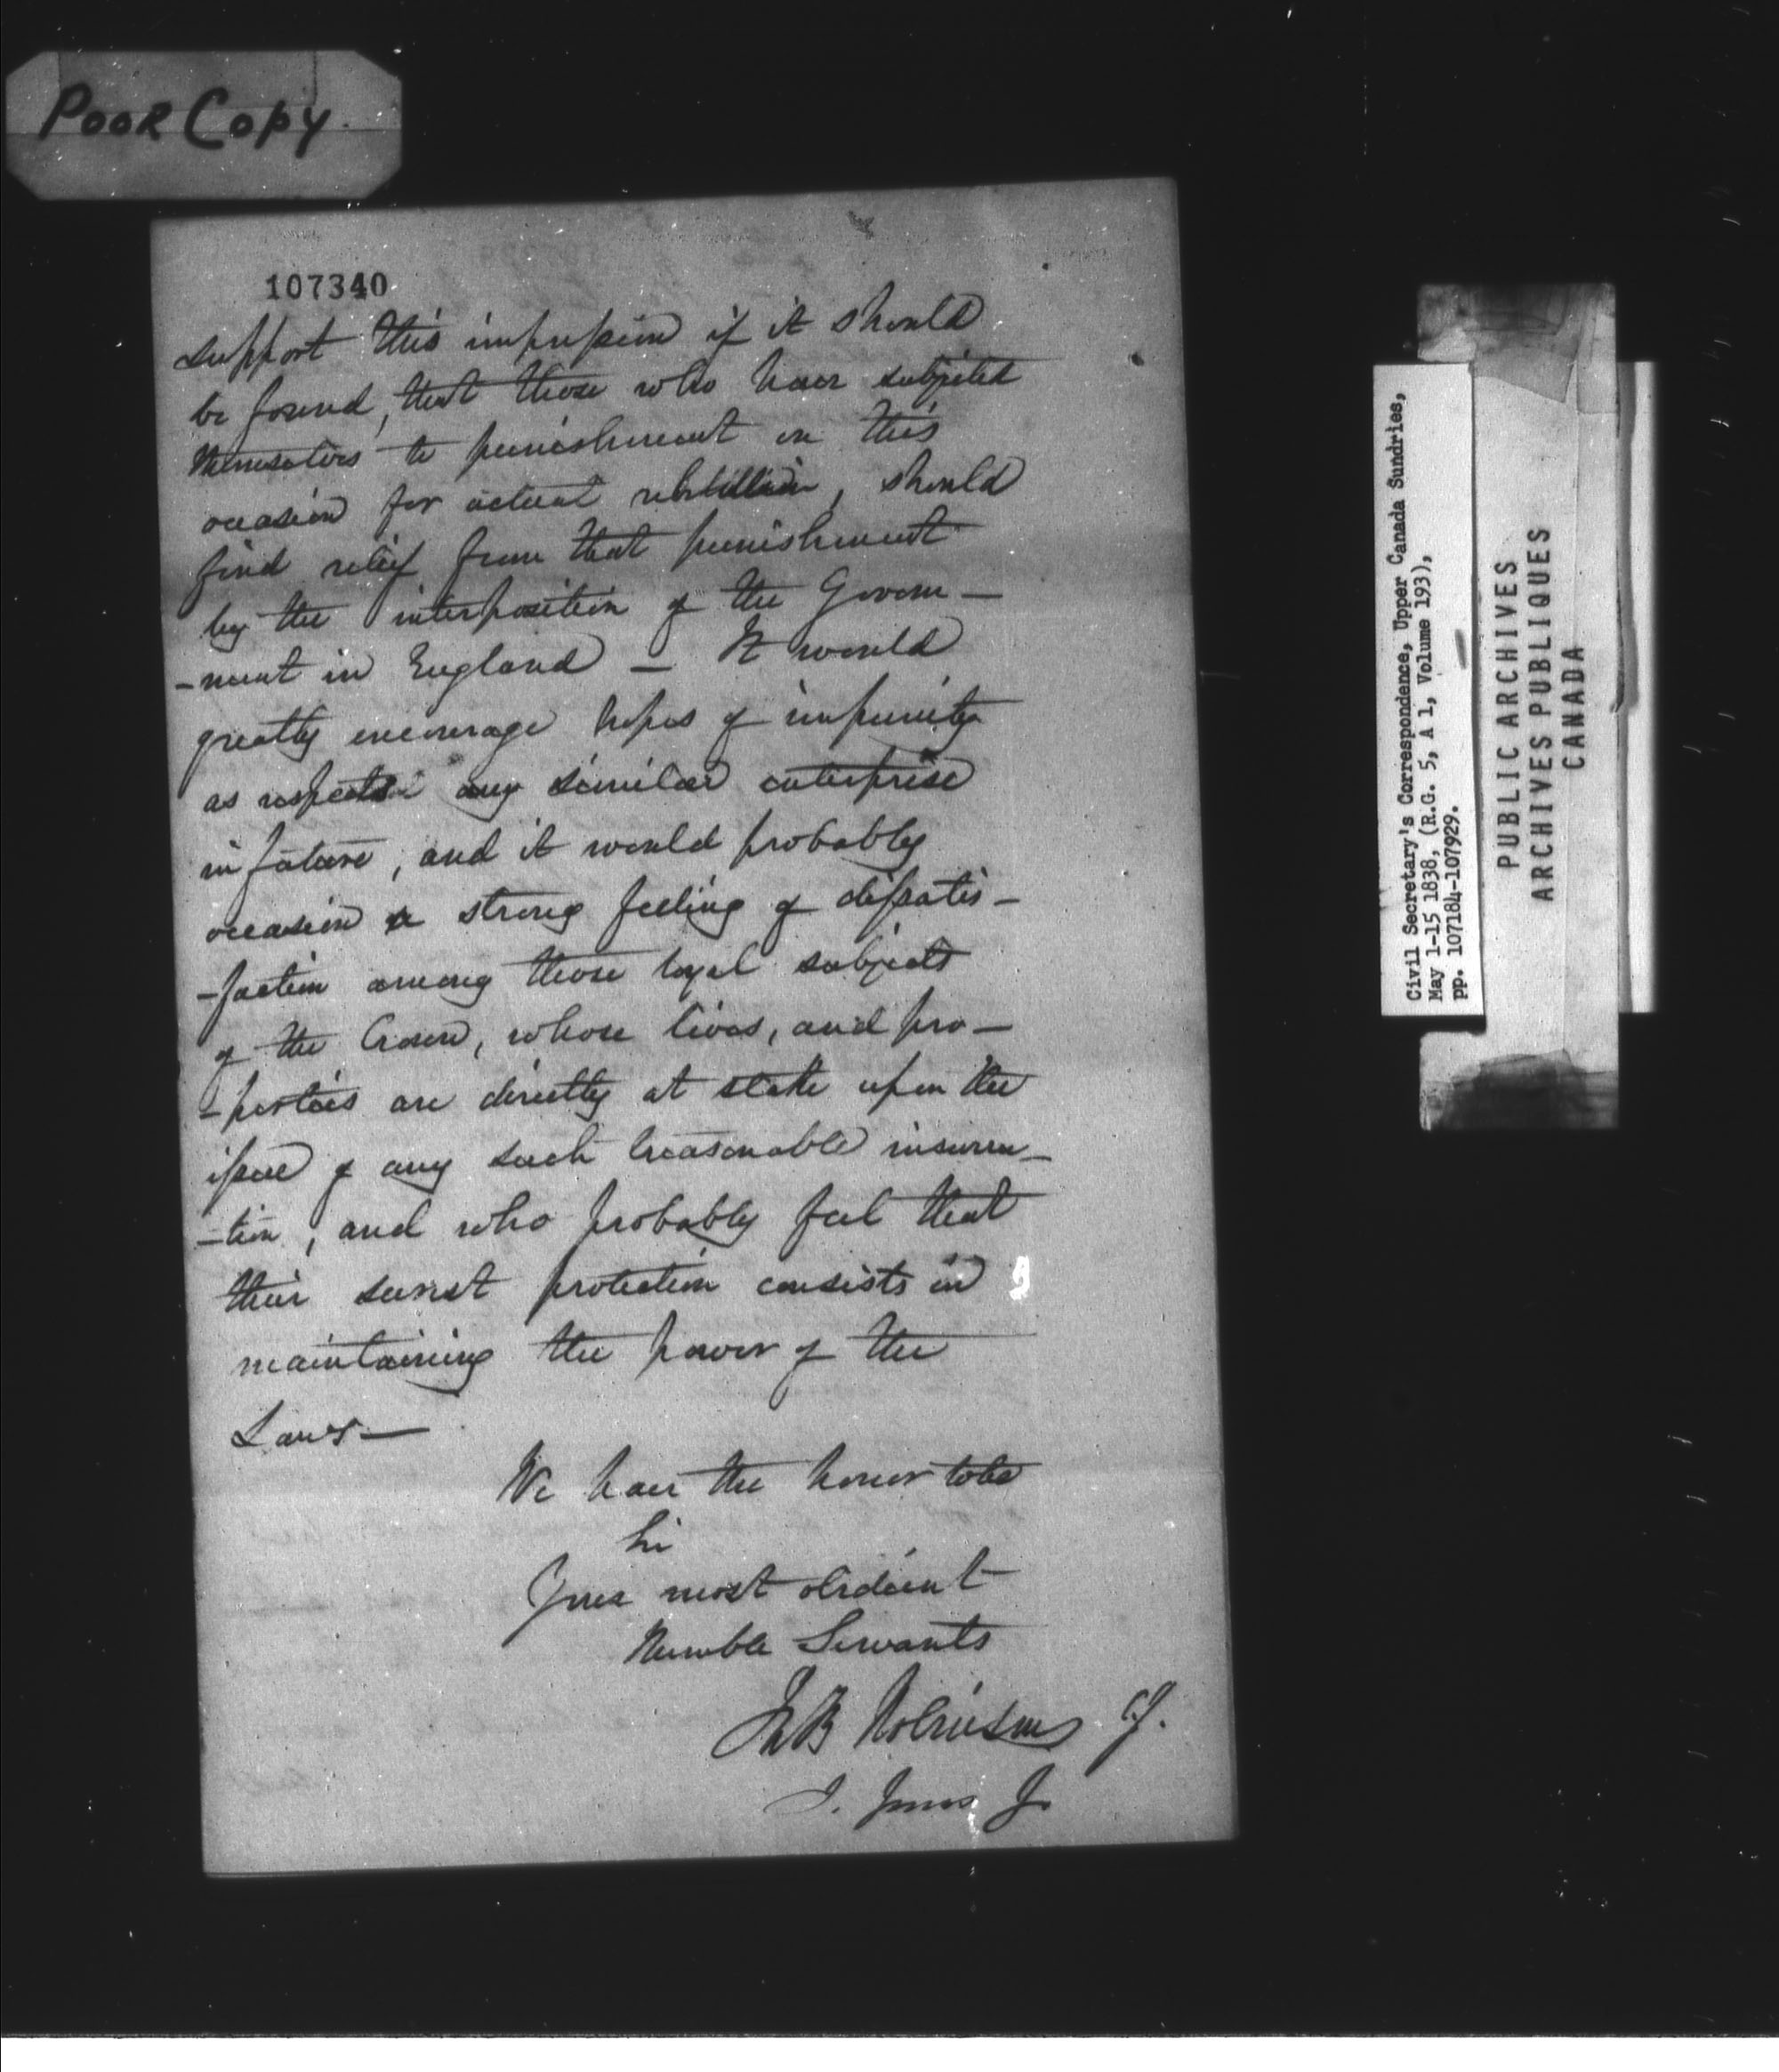 POOR COPY
107340
support this impression if it should
be found, that those who have subjected
themselves to punishment on this
occasion for actual rebellion, should
find relief from that punishment
by the interposition of the Govern-
-ment in England - It would
greatly encourage hopes of impunity
as respects any similar enterprise
in future, and it would probably
occasion a strong feeling of dissatis-
-faction among those loyal subjects
of the Crown, whose lives, and pro-
-perties are directly at stake upon the
issue of any such treasonable insurrec-
-tion, and who probably feel that
their surest protection consists in
maintaining the power of the
Laws-
We have the honor to be
Sir
Your most obedient
Humble Servants
Jno B Robinson CJ.
J. Jones J.
Civil Secretary's Correspondence, Upper Canada Sundries,
May 1-15 1838, (R.G. 5, A 1, Volume 193),
pp. 107184-107929.
PUBLIC ARCHIVES
ARCHIVES PUBLIQUES
CANADA